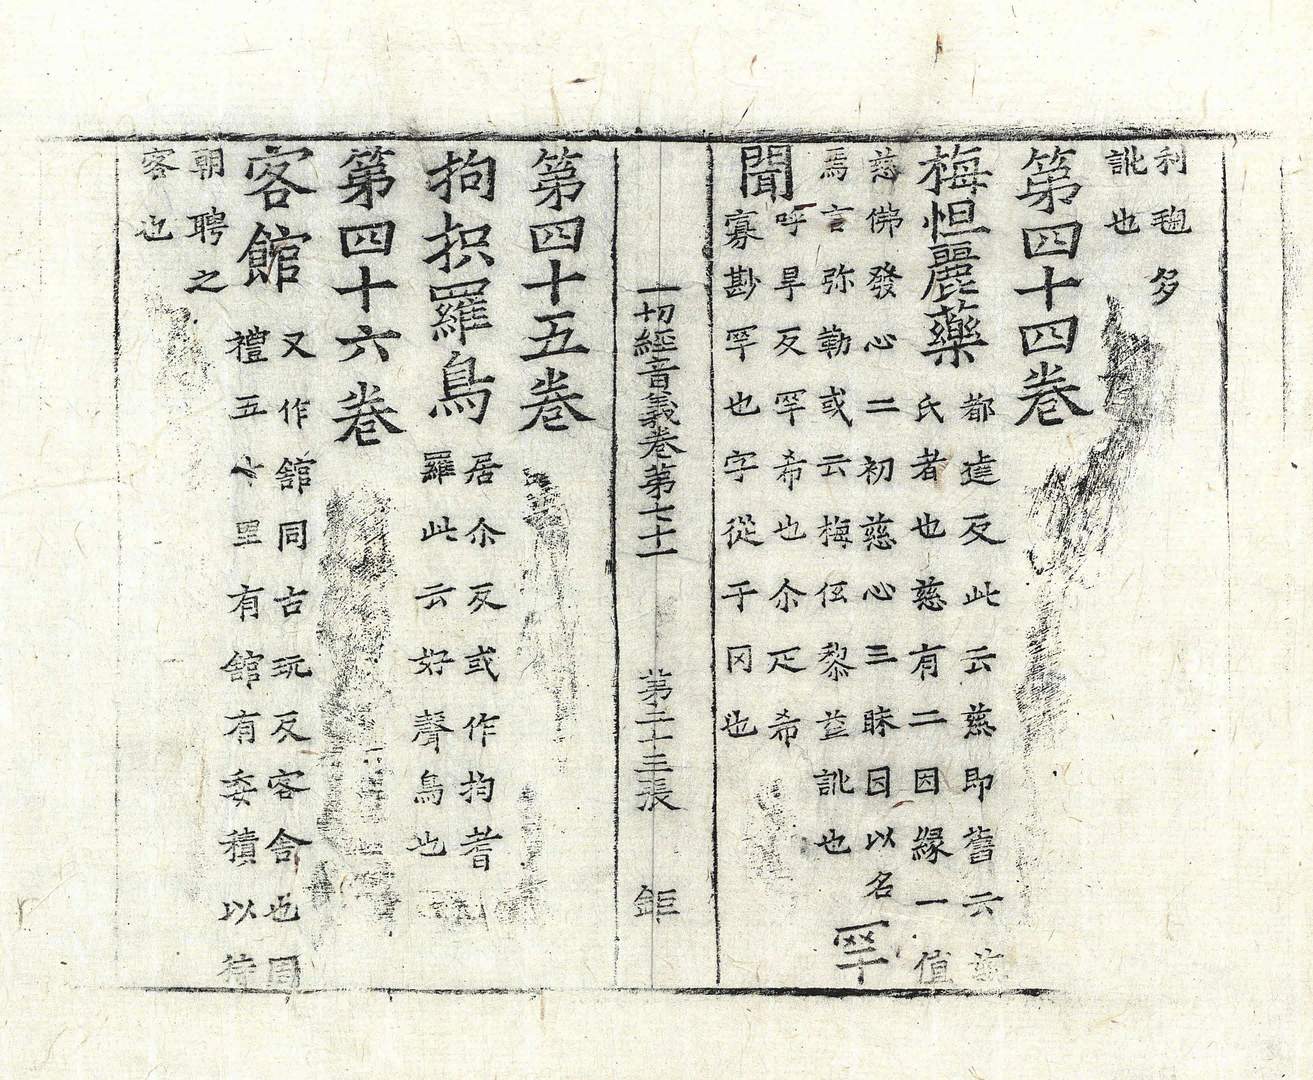 利毱多
訛也
第四十四卷
梅怛麗藥
都達反此云慈即舊云慈
氏者也慈有二因緣一值
慈佛發心二初慈心三昧因以名
焉言弥勒或云梅伭黎並訛也
罕
聞
呼旱反罕希也尒疋希
寡尠罕也字從干冈也
一切經音義卷第七十一 第二十三張 鉅
第四十五卷
拘抧羅鳥
居尒反或作拘耆
羅此云好聲鳥也
第四十六卷
客館
又作舘同古玩反客舍也周
禮五十里有舘有委積以待
朝聘之
客也